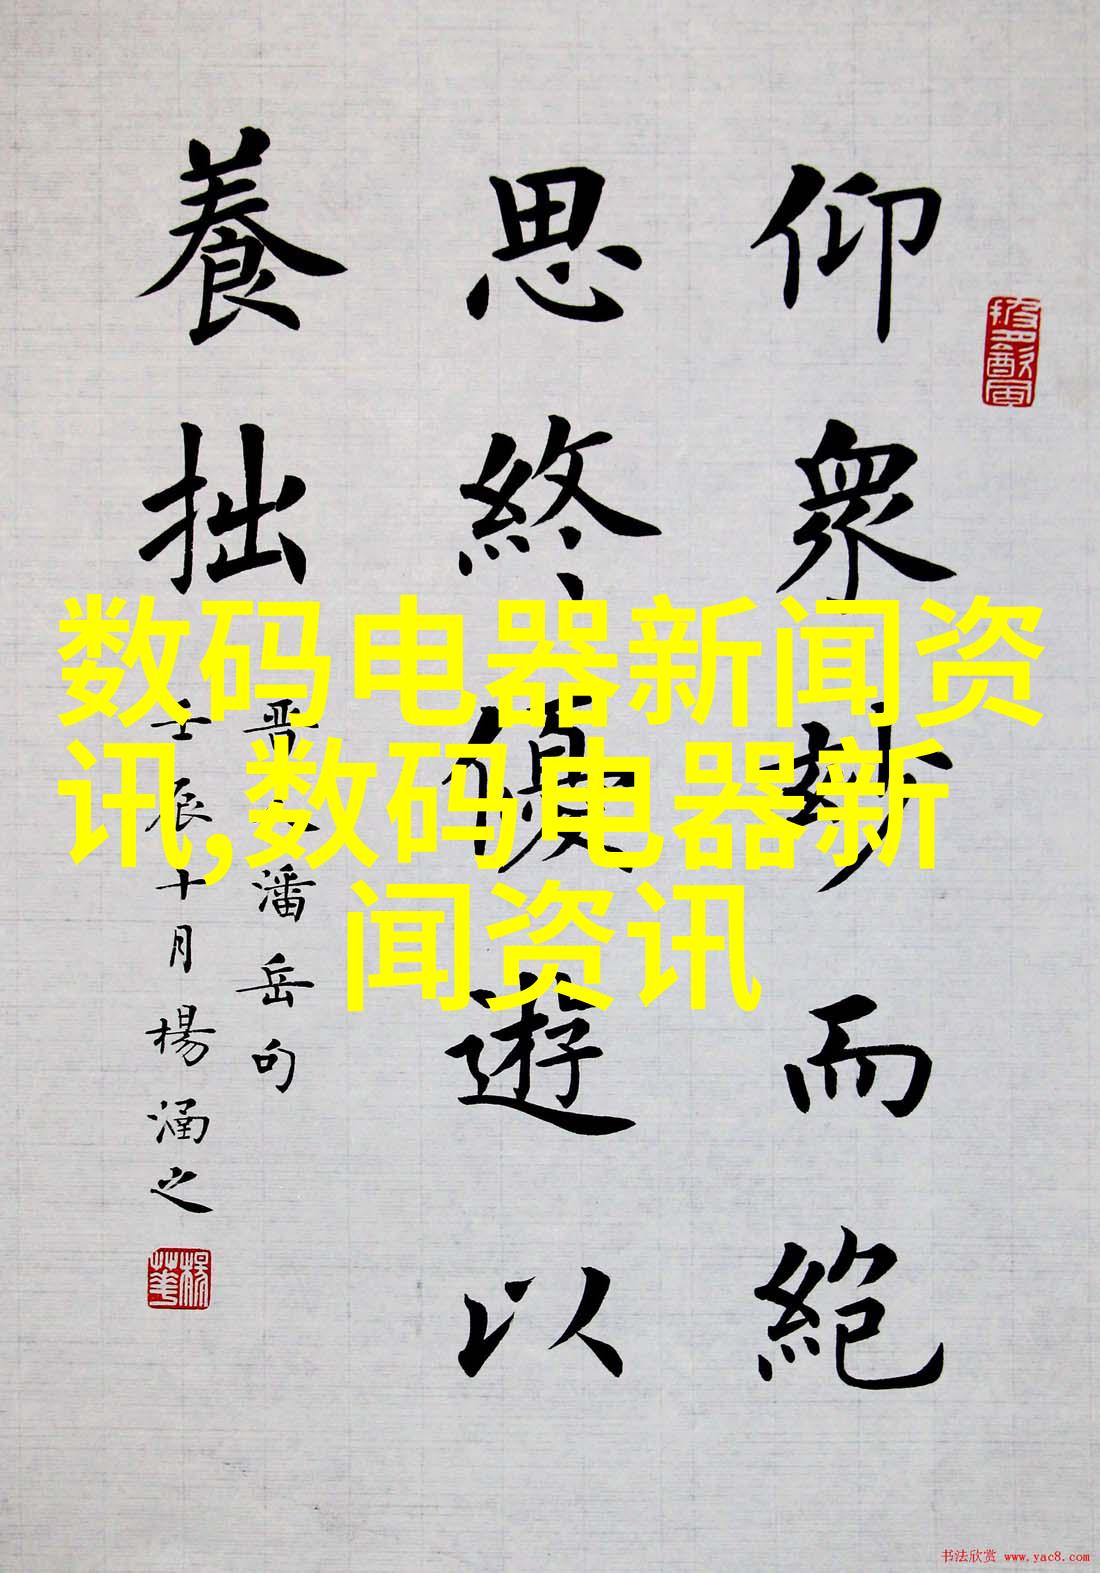 仰眾妙而絕
思終優遊以
養拙
晉 潘岳句
壬辰十月楊涵之
数码电器新闻资
讯,数码电器新
闻资讯
书法欣赏 www.yac8.com